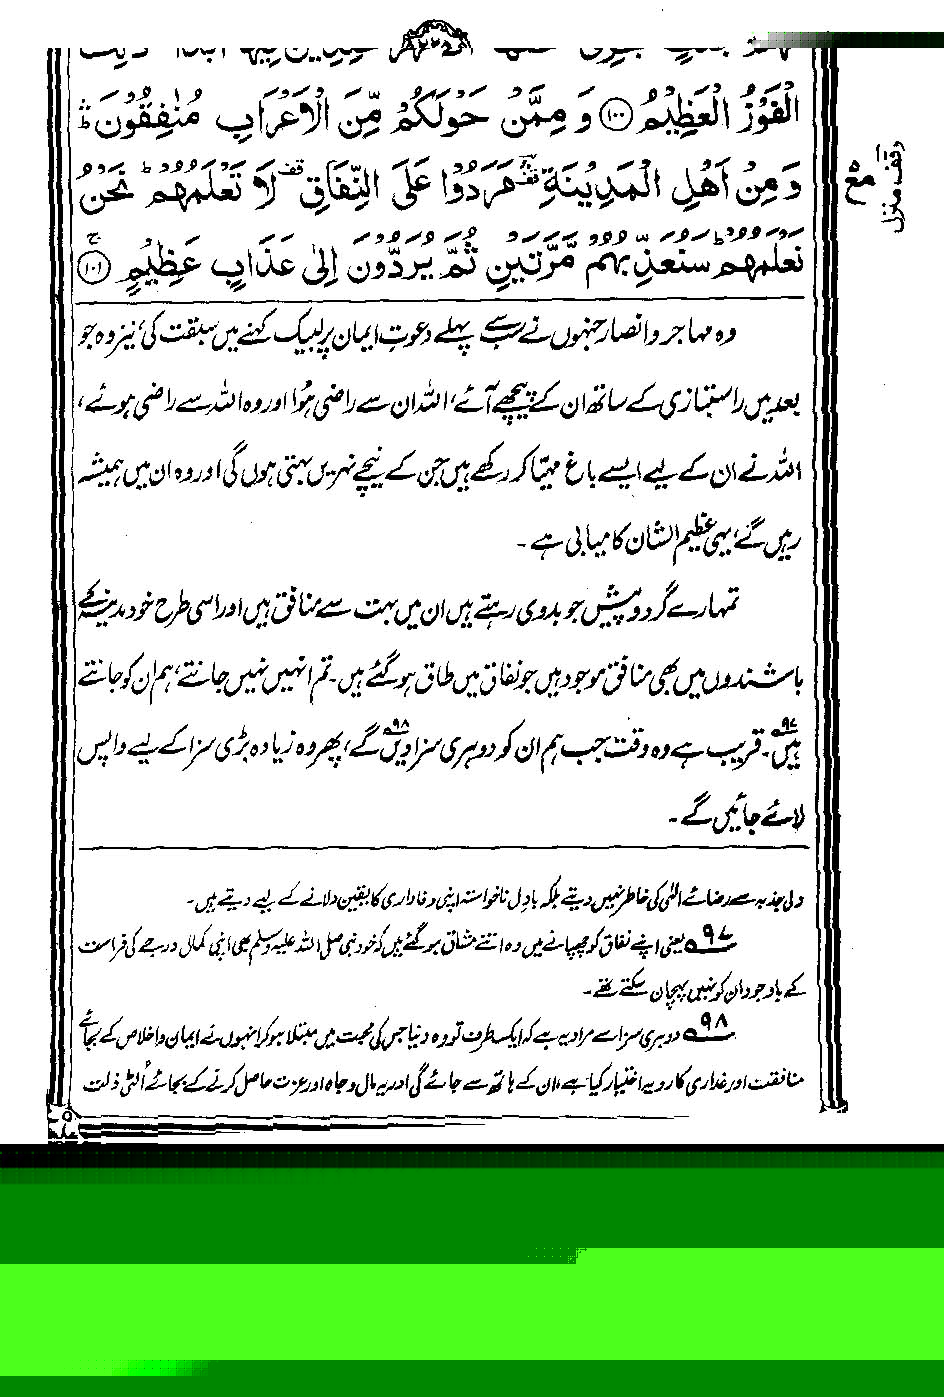 الْفَوْزُ الْعَظِيْمُ ﴿۱۰۰﴾ وَ مِمَّنْ حَوْلَكُمْ مِّنَ الْاَعْرَابِ مُنٰفِقُوْنَ ؕۛ
وَ مِنْ اَهْلِ الْمَدِيْنَةِ ۛ۫ مَرَدُوْا عَلَى النِّفَاقِ ۫ لَا تَعْلَمُهُمْ ؕ نَحْنُ
نَعْلَمُهُمْ ؕ سَنُعَذِّبُهُمْ مَّرَّتَيْنِ ثُمَّ يُرَدُّوْنَ اِلٰى عَذَابٍ عَظِيْمٍ ﴿۱۰۱﴾ ۚ
وہ مہاجر و انصار جنہوں نے سب سے پہلے دعوتِ ایمان پر لبیک کہنے میں سبقت کی، نیز وہ جو
بعد میں راستبازی کے ساتھ ان کے پیچھے آئے، اللہ ان سے راضی ہوُا اور وہ اللہ سے راضی ہوئے،
اللہ نے ان کے لیے ایسے باغ مہیّا کر رکھے ہیں جن کے نیچے نہریں بہتی ہوں گی اور وہ ان میں ہمیشہ
رہیں گے، یہی عظیم الشان کامیابی ہے۔
تمہارے گرد و پیش جو بدوی رہتے ہیں ان میں بہت سے منافق ہیں اور اسی طرح خود مدینہ کے
باشندوں میں بھی منافق موجود ہیں جو نفاق میں طاق ہو گئے ہیں۔ تم انہیں نہیں جانتے، ہم ان کو جانتے
ہیں۹۷۔ قریب ہے وہ وقت جب ہم ان کو دوہری سزا دیں۹۸ گے، پھر وہ زیادہ بڑی سزا کے لیے واپس
لائے جائیں گے۔
دلی جذبہ سے رضائے الٰہی کی خاطر نہیں دیتے بلکہ بادلِ ناخواستہ اپنی وفاداری کا یقین دلانے کے لیے دیتے ہیں۔
۹۷ یعنی اپنے نفاق کو چھپانے میں وہ اتنے مشاق ہو گئے ہیں کہ خود نبی صلی اللہ علیہ وسلم بھی اپنی کمال درجے کی فراست
کے باوجود ان کو نہیں پہچان سکتے تھے۔
۹۸ دوہری سزا سے مراد یہ ہے کہ ایک طرف تو وہ دنیا جس کی محبت میں مبتلا ہو کر انہوں نے ایمان و اخلاص کے بجائے
منافقت اور غداری کا رویہ اختیار کیا ہے، ان کے ہاتھ سے جائے گی اور یہ مال و جاہ اور عزت حاصل کرنے کے بجائے اُلٹی ذلت
مع
وقف منزل